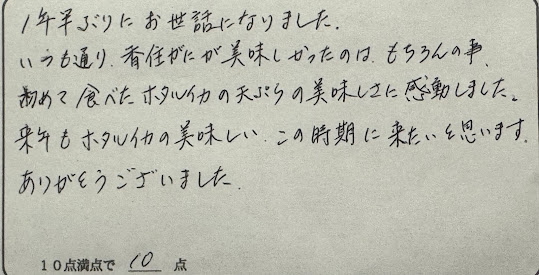 1年半ぶりにお世話になりました.
いつも通り、香住がにが美味しかったのは、もちろんの事、
初めて食べたホタルイカの天ぷらの美味しさに感動しました。
来年もホタルイカの美味しい、この時期に来たいと思います.
ありがとうございました.
10点満点で 10 点